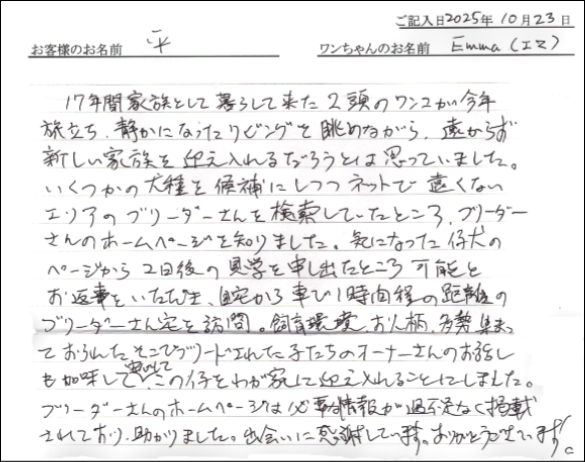 ご記入日2025年 10月23日
お客様のお名前 平 ワンちゃんのお名前 Emma（エマ）
17年間家族として暮らして来た2頭のワンコが今年
旅立ち、静かになったリビングを眺めながら、遠からず
新しい家族を迎え入れるだろうとは思っていました。
いくつかの犬種を候補にしつつネットで遠くない
エリアのブリーダーさんを検索していたところ、ブリーダー
さんのホームページを知りました。気になった仔犬の
ページから2日後の見学を申出たところ可能と
お返事をいただき、自宅から車で1時間程の距離の
ブリーダーさん宅を訪問。飼育環境、お人柄、多勢集まっ
ておられたそこでブリードされた子たちのオーナーさんのお話し
も加味して この仔をわが家に迎え入れることにしました。
ブリーダーさんのホームページは必要な情報が過不足なく掲載
されており、助かりました。出会いに感謝しています。ありがとうございます。